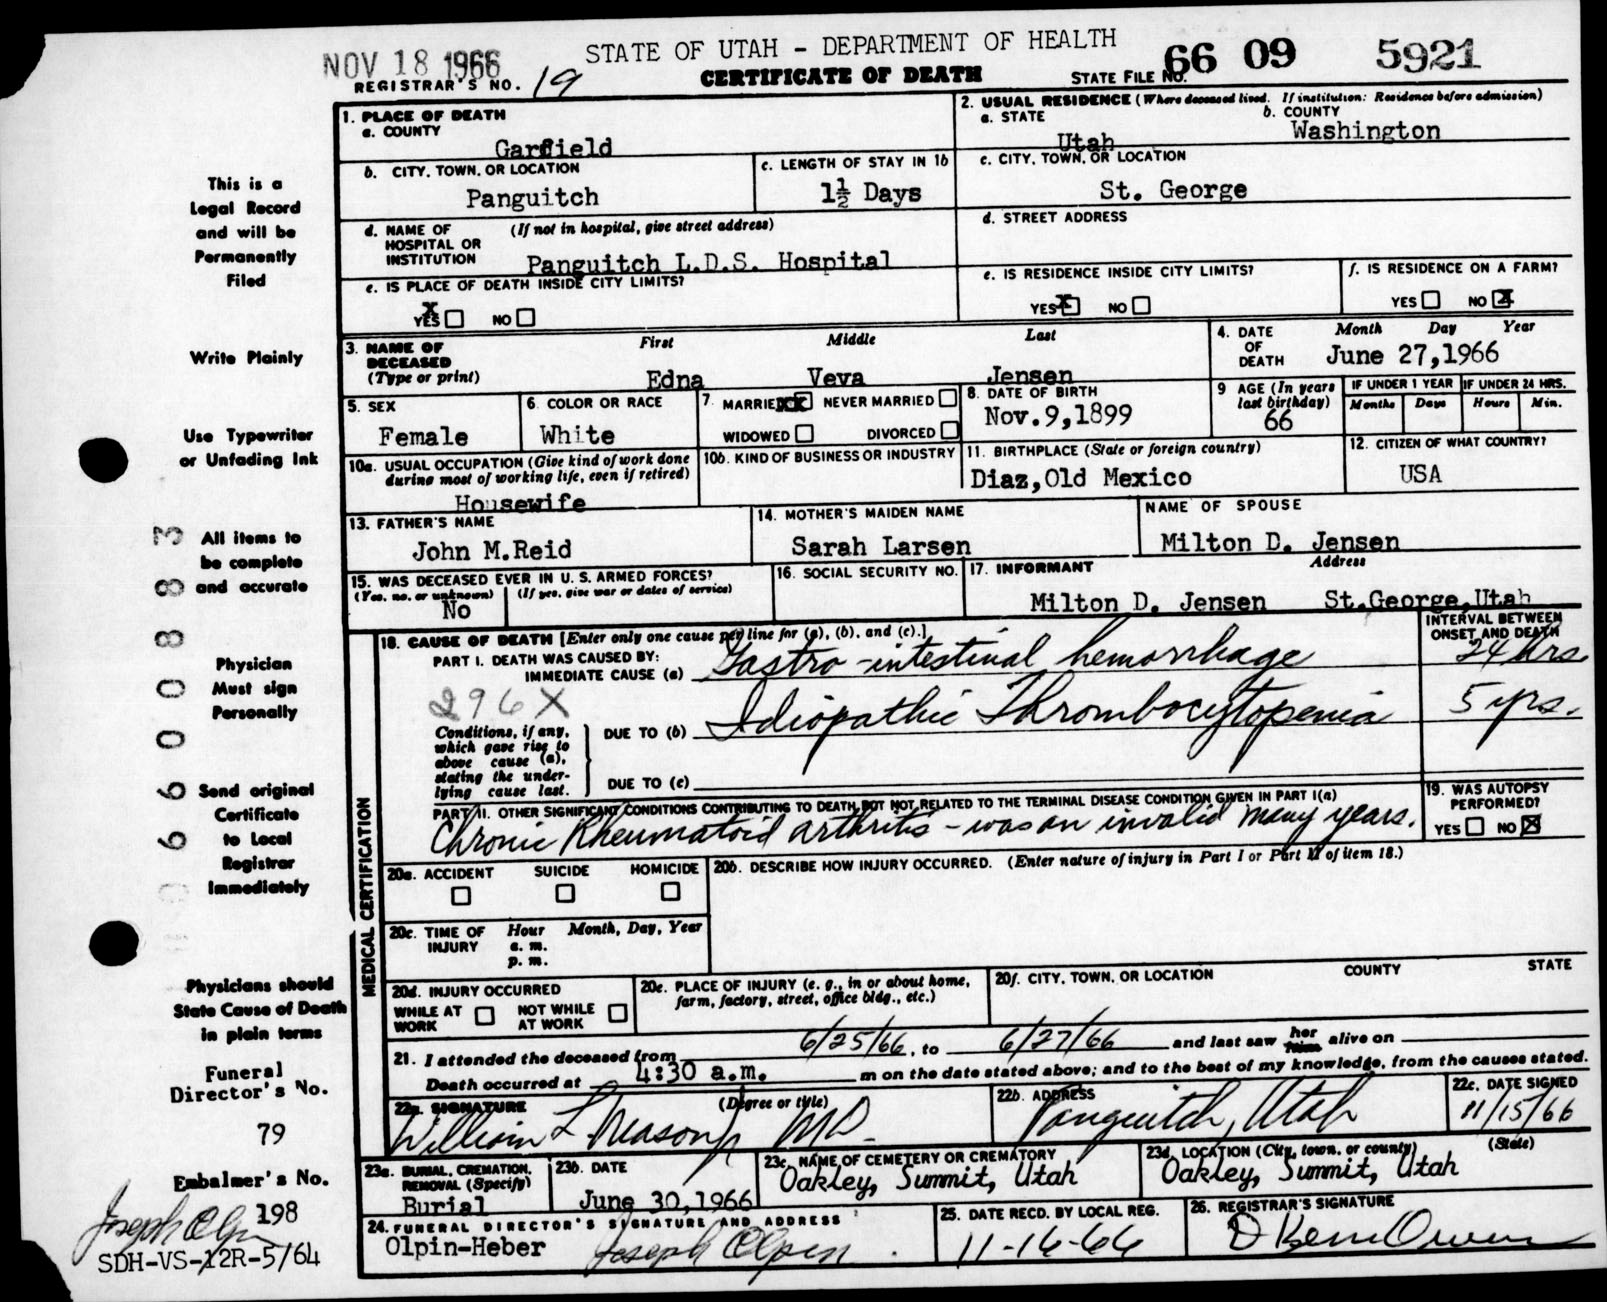 STATE OF UTAH - DEPARTMENT OF HEALTH
NOV 18 1966
REGISTRAR'S NO. 19
CERTIFICATE OF DEATH
STATE FILE NO. 66 09 5921
This is a
Legal Record
and will be
Permanently
Filed
Write Plainly
Use Typewriter
or Unfading Ink
All items to
be complete
and accurate
Physician
Must sign
Personally
Send original
Certificate
to Local
Registrar
Immediately
Physicians should
State Cause of Death
in plain terms
Funeral
Director's No.
79
Embalmer's No.
198
Joseph Olpin
SDH-VS-12R-5/64
96008883
1. PLACE OF DEATH
a. COUNTY
Garfield
b. CITY, TOWN, OR LOCATION
Panguitch
c. LENGTH OF STAY IN 1b
1½ Days
d. NAME OF HOSPITAL OR INSTITUTION (If not in hospital, give street address)
Panguitch L.D.S. Hospital
e. IS PLACE OF DEATH INSIDE CITY LIMITS?
X
YES NO
2. USUAL RESIDENCE (Where deceased lived. If institution: Residence before admission)
a. STATE
Utah
b. COUNTY
Washington
c. CITY, TOWN, OR LOCATION
St. George
d. STREET ADDRESS
e. IS RESIDENCE INSIDE CITY LIMITS?
YES X NO
f. IS RESIDENCE ON A FARM?
YES NO X
3. NAME OF DECEASED (Type or print)
First Middle Last
Edna Veva Jensen
4. DATE OF DEATH
Month Day Year
June 27,1966
5. SEX
Female
6. COLOR OR RACE
White
7. MARRIED XX NEVER MARRIED
WIDOWED DIVORCED
8. DATE OF BIRTH
Nov.9,1899
9 AGE (In years last birthday)
66
IF UNDER 1 YEAR IF UNDER 24 HRS.
Months Days Hours Min.
10a. USUAL OCCUPATION (Give kind of work done during most of working life, even if retired)
Housewife
10b. KIND OF BUSINESS OR INDUSTRY
11. BIRTHPLACE (State or foreign country)
Diaz,Old Mexico
12. CITIZEN OF WHAT COUNTRY?
USA
13. FATHER'S NAME
John M.Reid
14. MOTHER'S MAIDEN NAME
Sarah Larsen
NAME OF SPOUSE
Milton D. Jensen
15. WAS DECEASED EVER IN U. S. ARMED FORCES?
(Yes, no, or unknown) (If yes, give war or dates of service)
No
16. SOCIAL SECURITY NO.
17. INFORMANT Address
Milton D. Jensen St.George,Utah
MEDICAL CERTIFICATION
18. CAUSE OF DEATH [Enter only one cause per line for (a), (b), and (c).]
INTERVAL BETWEEN ONSET AND DEATH
PART I. DEATH WAS CAUSED BY:
IMMEDIATE CAUSE (a) Gastro-intestinal hemorrhage 24 hrs.
296X
Conditions, if any, which gave rise to above cause (a), stating the underlying cause last.
DUE TO (b) Idiopathic Thrombocytopenia 5 yrs.
DUE TO (c)
PART II. OTHER SIGNIFICANT CONDITIONS CONTRIBUTING TO DEATH BUT NOT RELATED TO THE TERMINAL DISEASE CONDITION GIVEN IN PART I(a)
Chronic Rheumatoid arthritis - was an invalid many years.
19. WAS AUTOPSY PERFORMED?
YES NO X
20a. ACCIDENT SUICIDE HOMICIDE
20b. DESCRIBE HOW INJURY OCCURRED. (Enter nature of injury in Part I or Part II of item 18.)
20c. TIME OF INJURY Hour Month, Day, Year
a. m.
p. m.
20d. INJURY OCCURRED
WHILE AT WORK NOT WHILE AT WORK
20e. PLACE OF INJURY (e. g., in or about home, farm, factory, street, office bldg., etc.)
20f. CITY, TOWN, OR LOCATION COUNTY STATE
21. I attended the deceased from 6/25/66, to 6/27/66 and last saw her him alive on
Death occurred at 4:30 a.m. m on the date stated above; and to the best of my knowledge, from the causes stated.
22a. SIGNATURE (Degree or title)
William L Mason Jr MD.
22b. ADDRESS
Panguitch, Utah
22c. DATE SIGNED
11/15/66
23a. BURIAL, CREMATION, REMOVAL (Specify)
Burial
23b. DATE
June 30,1966
23c. NAME OF CEMETERY OR CREMATORY
Oakley, Summit, Utah
23d. LOCATION (City, town, or county) (State)
Oakley, Summit, Utah
24. FUNERAL DIRECTOR'S SIGNATURE AND ADDRESS
Olpin-Heber Joseph Olpin
25. DATE RECD. BY LOCAL REG.
11-16-66
26. REGISTRAR'S SIGNATURE